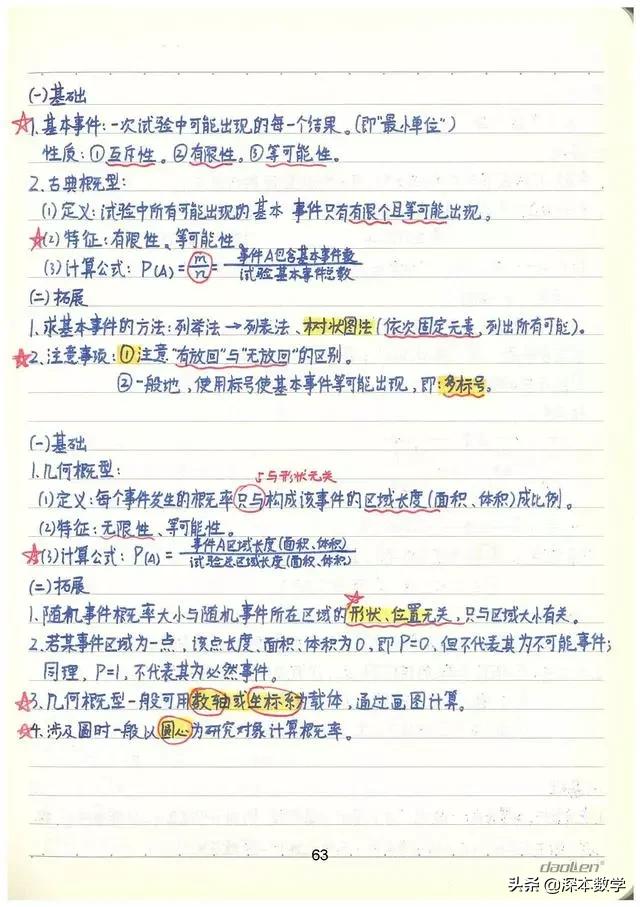 (一)基础
1.基本事件:一次试验中可能出现的每一个结果。(即"最小单位")
性质:①互斥性。②有限性。③等可能性。
2.古典概型:
(1)定义:试验中所有可能出现的基本 事件只有有限个且等可能出现。
(2)特征:有限性、等可能性。
(3)计算公式:P(A)=m/n=事件A包含基本事件数/试验基本事件总数
(二)拓展
1.求基本事件的方法:列举法→列表法、树状图法(依次固定元素,列出所有可能)。
2.注意事项:①注意"有放回"与"无放回"的区别。
②一般地,使用标号使基本事件等可能出现,即:多标号。
(一)基础
1.几何概型:
与形状无关
(1)定义:每个事件发生的概率只与构成该事件的区域长度(面积、体积)成比例。
(2)特征:无限性、等可能性。
(3)计算公式:P(A)=事件A区域长度(面积、体积)/试验总区域长度(面积、体积)
(二)拓展
1.随机事件概率大小与随机事件所在区域的形状、位置无关,只与区域大小有关。
2.若某事件区域为一点,该点长度、面积、体积为0,即P=0,但不代表其为不可能事件;
同理,P=1,不代表其为必然事件。
3.几何概型一般可用数轴或坐标系为载体,通过画图计算。
4.涉及圆时一般以圆心为研究对象计算概率。
63
daolien
头条@深本数学